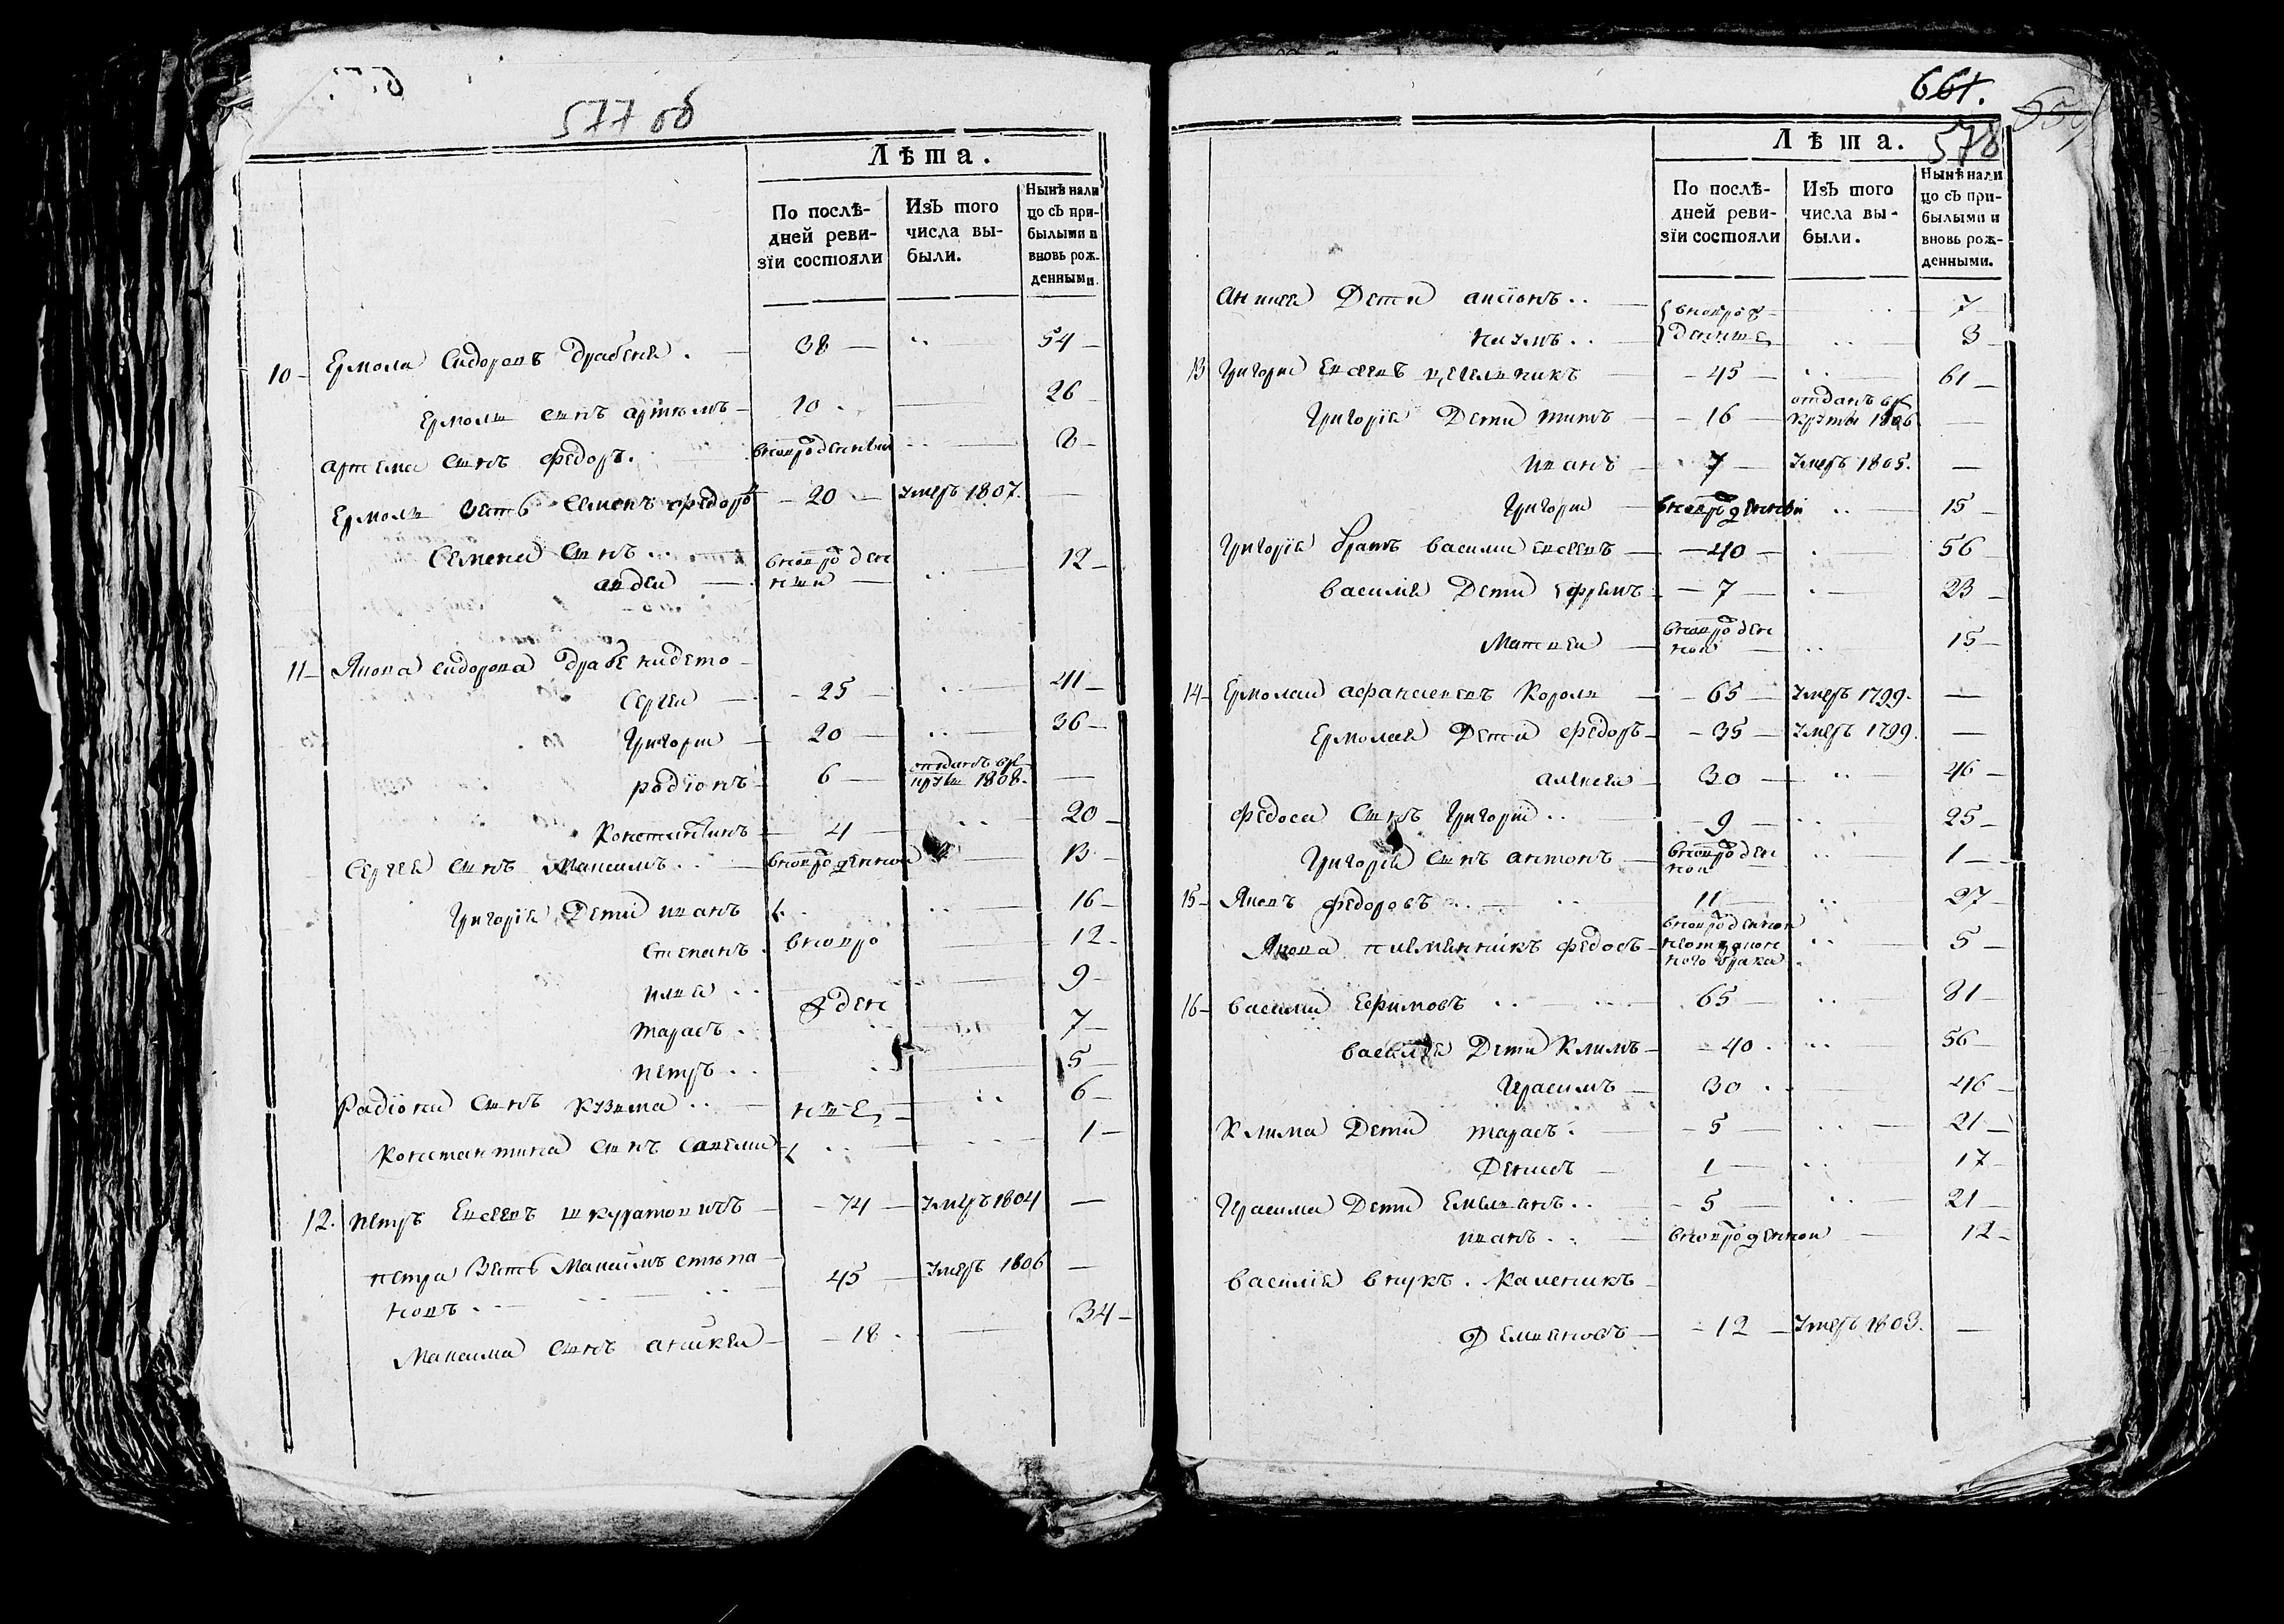 577 об
Лѣта.
По послѣ-
дней реви-
зїи состояли
Изъ того
числа вы-
были.
Нынѣ нали
цо съ при-
былыми и
вновь рож-
денными.
10 Ермола Сидоровъ Драбеня . 38 54
Ермолы сынъ артемъ 10 . 26
артема сынъ федоръ. вновророденный 8
Ермолы зять Семенъ федоро 20 умеръ 1807.
Семена Сынъ ..
авдеи вновроден
ныи 12
11 Якова сидорова драбени дети
Сергеи 25 41
Григории 20 36
радїонъ 6 отданъ врекруты 1808.
Константинъ 4 20
Сергея Сынъ Максимъ .. вновороденнои 13
Григорїя Дети иванъ 16
Степанъ . вновро 12
илья .. 9
тарасъ . жден 7
петръ .. 5
Радїона Сынъ Кузма .. ные 6
Константина Сынъ Савелии 1
12. петръ Евсеевъ шкуратовичъ 74 умеръ 1804
петра Зять Максимъ степа
новъ . 45 умеръ 1806
Максима Сынъ аникеи 18 . 34
664.
659
578
Лѣта.
По послѣ-
дней реви-
зїи состояли
Изъ того
числа вы-
были.
Нынѣ нали
цо съ при-
былыми и
вновь рож-
денными.
аникея Дети аксїонъ .. вновро 7
наумъ .. денные 3
13 Григории Евсеевъ 45 61
Григорїя Дети титъ 16 отданъ врекруты 1806
иванъ 7 умеръ 1805.
Григории вновроденныи 15
Григорїя братъ василии евсеевъ 40 56
василїя Дети ефремъ 7 23
Матвеи вновроден
нои 15
14 Ермолаи афанасиевъ Король 65 умеръ 1799.
Ермолая Дети федоръ 35 умеръ 1799.
алексеи 30 46
Федоса Сынъ Григории .. 9 25
Григорїя Сынъ антонъ вновроден
нои 1
15 Яковъ федоровъ .. 11 27
Якова племянникъ федосъ вновроденнои
неотзакон
ного брака 5
16 василии Ефимовъ .. 65 81
василїя Дети Климъ 40 . 56
Герасимъ 30 . 46
Клима Дети тарасъ . 5 21
Денисъ 1 17
Герасима Дети Емельянъ .. 5 21
иванъ .. вновороденнои 12
василїя внукъ . Каленикъ
Демьяновъ 12 умеръ 1803.